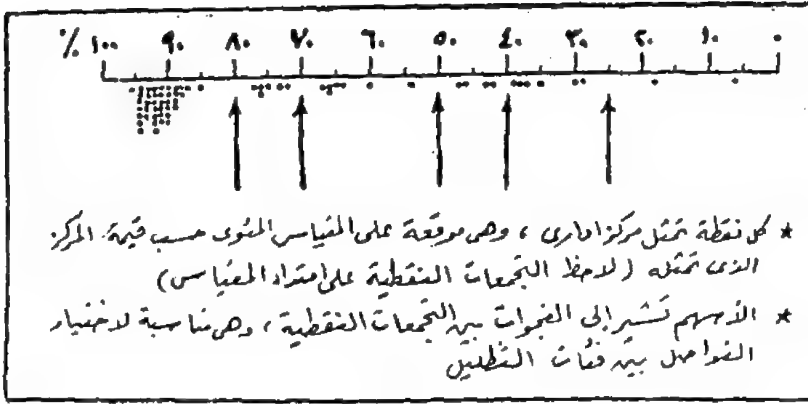 % ١٠٠ ٩٠ ٨٠ ٧٠ ٦٠ ٥٠ ٤٠ ٣٠ ٢٠ ١٠ ٠
* كل نقطة تمثل مركزا ادارى ، وهى موقعة على المقياس المئوى حسب قيمة المركز
الذى تمثله (لاحظ التجمعات النقطية على امتداد المقياس)
* الأسهم تشير إلى الفجوات بين التجمعات النقطية ، وهى مناسبة لاختيار
الفواصل بين فئات التظليل